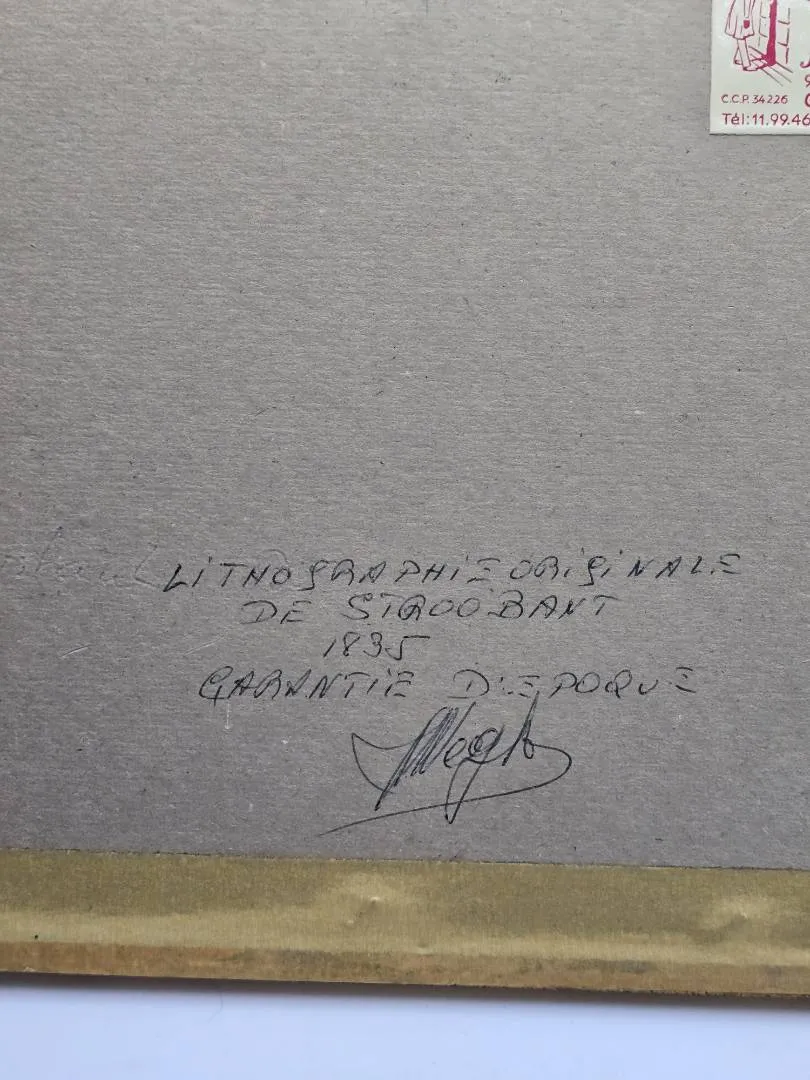 C.C.P. 34226
Tél: 11.99.46
LITHOGRAPHIE ORIGINALE
DE STROOBANT
1835
GARANTIE D'EPOQUE